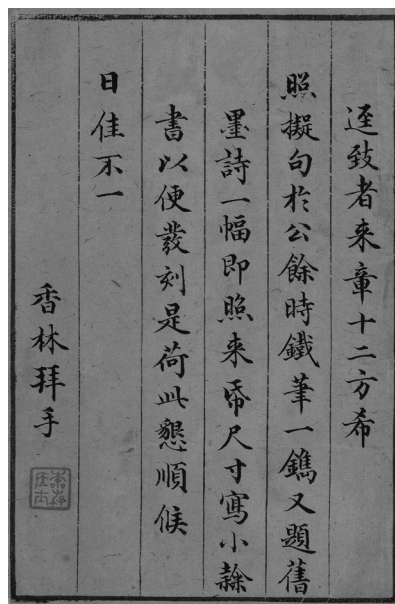 逕致者来章十二方希
照擬句於公餘時鐵筆一鐫又題舊
墨詩一幅即照来帋尺寸寫小隸
書以便發刻是荷此懇順候
日佳不一
香林拜手